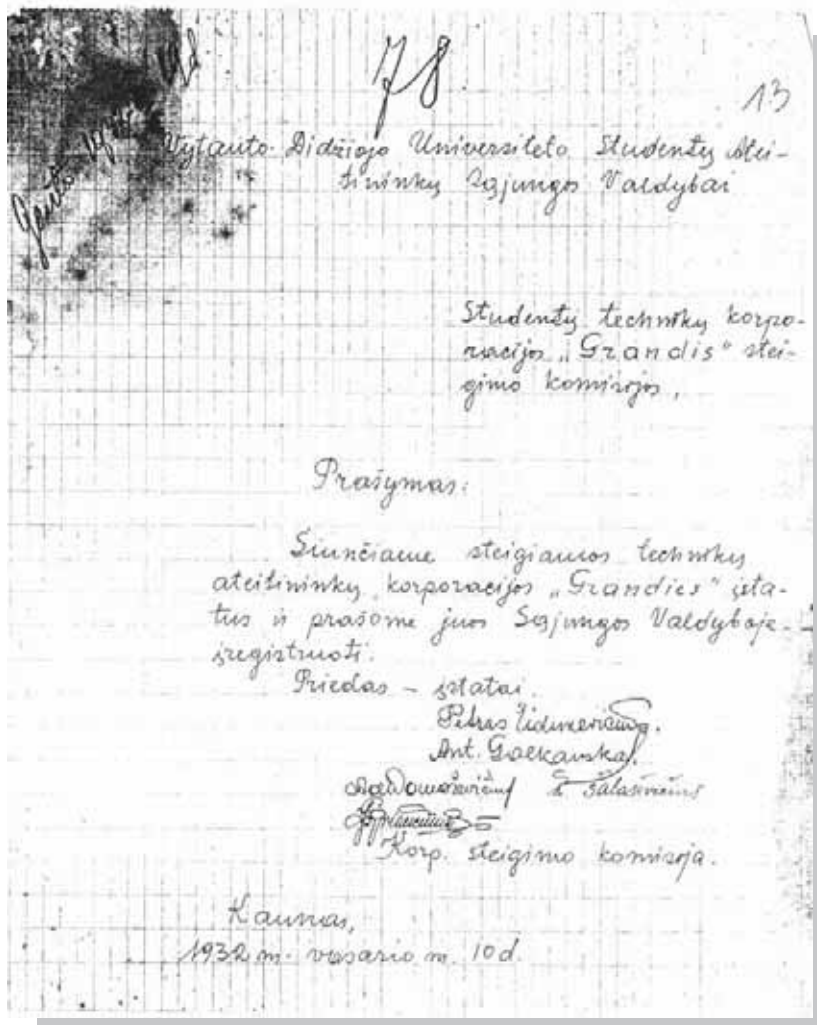 78
13
Vytauto Didžiojo Universiteto Studentų Atei-
tininkų Sąjungos Valdybai
Studentų technikų korpo-
racijos „Grandis" stei-
gimo komisijos,
Prašymas:
Siunčiame steigiamos technikų
ateitininkų korporacijos „Grandies" įsta-
tus ir prašome juos Sąjungos Valdyboje
įregistruoti.
Priedas – įstatai.
Petras
Ant.
Korp. steigimo komisija.
Kaunas,
1932 m. vasario m. 10 d.